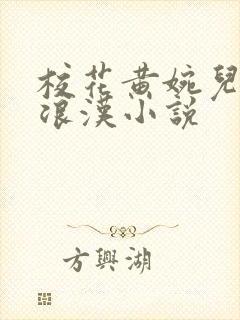 校花黄婉兒
浪漢小說
方興湖